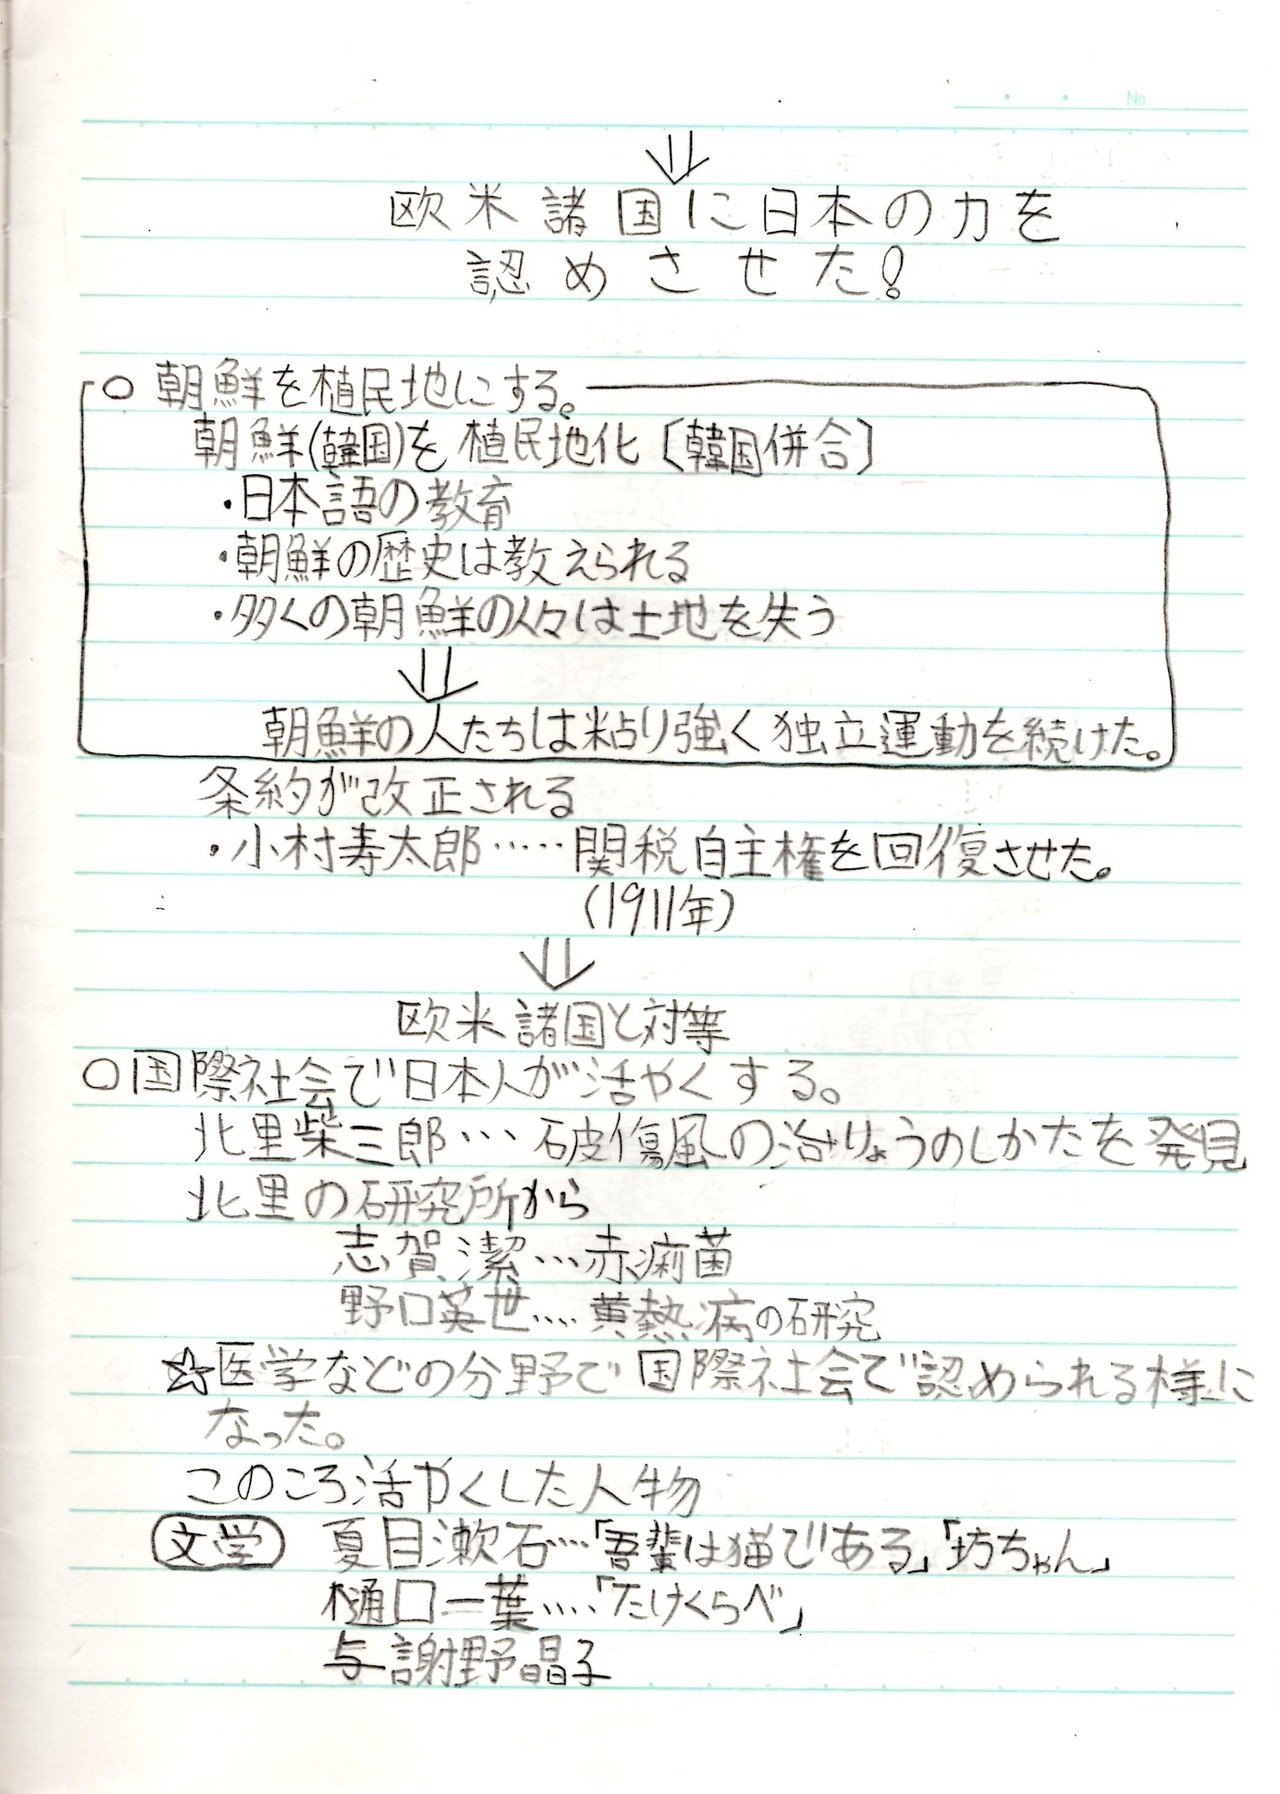 No
⇓
欧米諸国に日本の力を
認めさせた!
○ 朝鮮を植民地にする。
朝鮮(韓国)を植民地化〔韓国併合〕
・日本語の教育
・朝鮮の歴史は教えられる
・多くの朝鮮の人々は土地を失う
⇓
朝鮮の人たちは粘り強く独立運動を続けた。
条約が改正される
・小村寿太郎……関税自主権を回復させた。
(1911年)
⇓
欧米諸国と対等
○国際社会で日本人が活やくする。
北里柴三郎…破傷風の治りょうのしかたを発見
北里の研究所から
志賀潔…赤痢菌
野口英世…黄熱病の研究
☆医学などの分野で国際社会で認められる様に
なった。
このころ活やくした人物
文学 夏目漱石…「吾輩は猫である」「坊ちゃん」
樋口一葉…「たけくらべ」
与謝野晶子